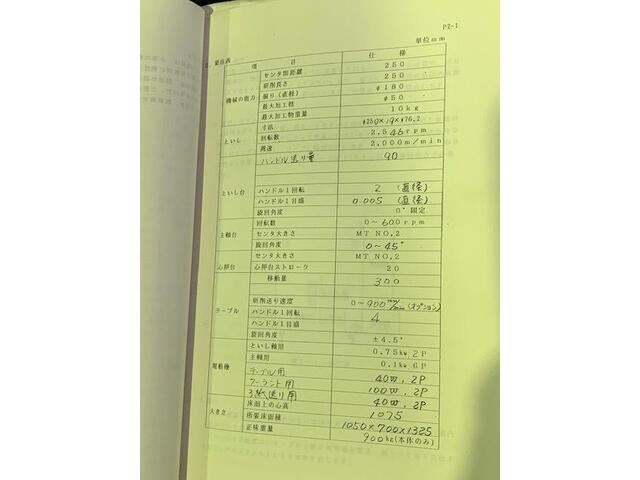 P2-1
単位mm
項 目 仕 様
センタ間距離 250
研削長さ 250
機械の能力 振り(直径) φ180
最大加工径 φ50
最大加工物重量 10kg
寸法 φ250×19×φ76.2
といし 回転数 2,546rpm
周速 2,000m/min
ハンドル送り量 90
といし台 ハンドル1回転 2 (直径)
ハンドル1目盛 0.005 (直径)
旋回角度 0°固定
回転数 0~600rpm
主軸台 センタ大きさ MT NO.2
旋回角度 0~45°
センタ大きさ MT NO.2
心押台 心押台ストローク 20
移動量 300
研削送り速度 0~900mm/min(オプション)
テーブル ハンドル1回転 4
ハンドル1目盛
旋回角度 ±4.5°
といし軸用 0.75kw,2P
主軸用 0.1kw,6P
電動機 テーブル用 40W,2P
クーラント用 100W,2P
送り用 40W,2P
床面上の心高 1075
大きさ 所要床面積 1050×700×1325
正味重量 900kg(本体のみ)